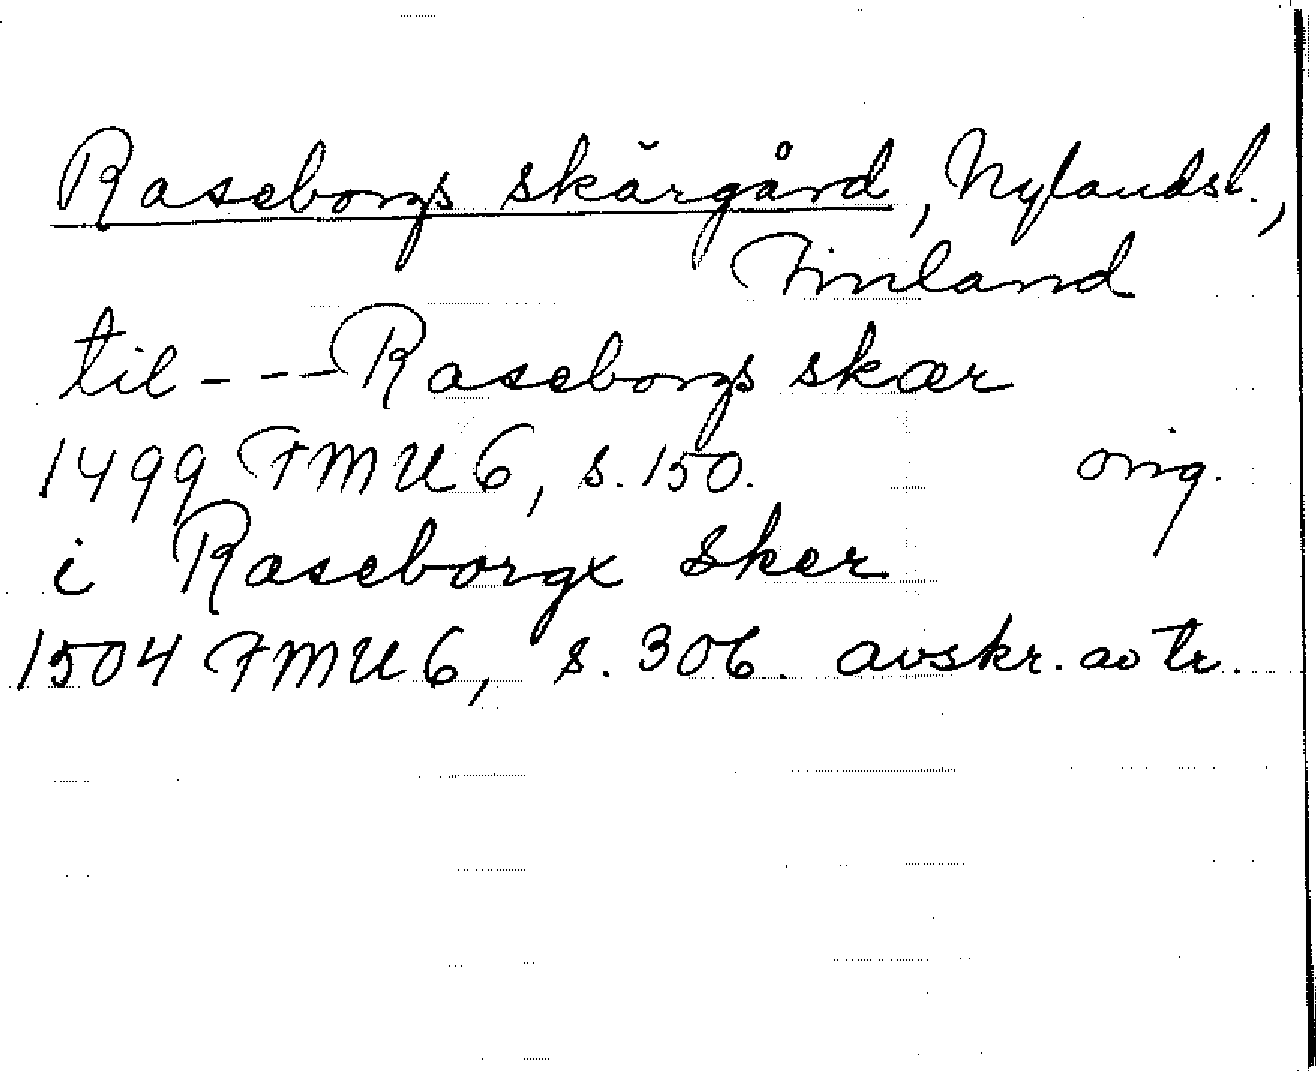 Raseborgs skärgård, Nylandsl.,
Finland
til --- Raseborgs skær
1499 FMU 6, s. 150. orig.
i Raseborgx sker
1504 FMU 6, s. 306. avskr. av tr.